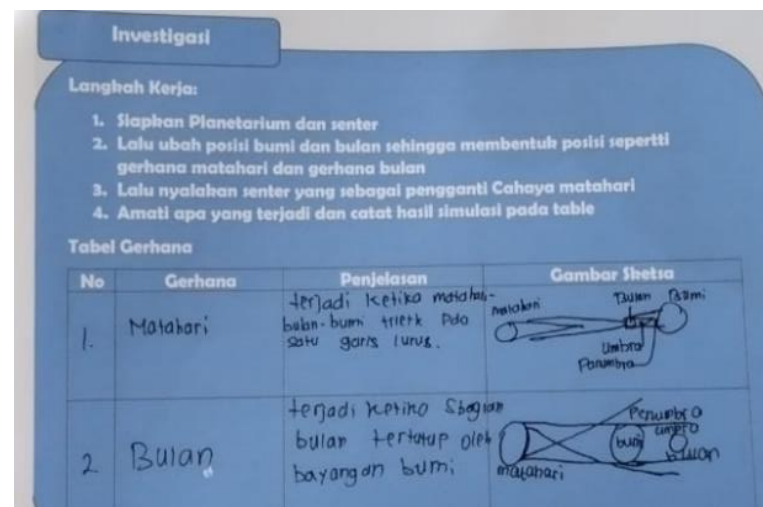 Investigasi
Langkah Kerja:
1. Siapkan Planetarium dan senter
2. Lalu ubah posisi bumi dan bulan sehingga membentuk posisi sepertti
gerhana matahari dan gerhana bulan
3. Lalu nyalakan senter yang sebagai pengganti Cahaya matahari
4. Amati apa yang terjadi dan catat hasil simulasi pada table
Tabel Gerhana
No Gerhana Penjelasan Gambar Sketsa
1. Matahari
terjadi ketika matahari-
bulan-bumi
satu garis lurus.
matahari Bulan Bumi
Umbra
Parumbra
2 Bulan
terjadi ketika Sbagian
bulan tertutup oleh
bayangan bumi
Penumbra
umbra
bumi
bulan
matahari